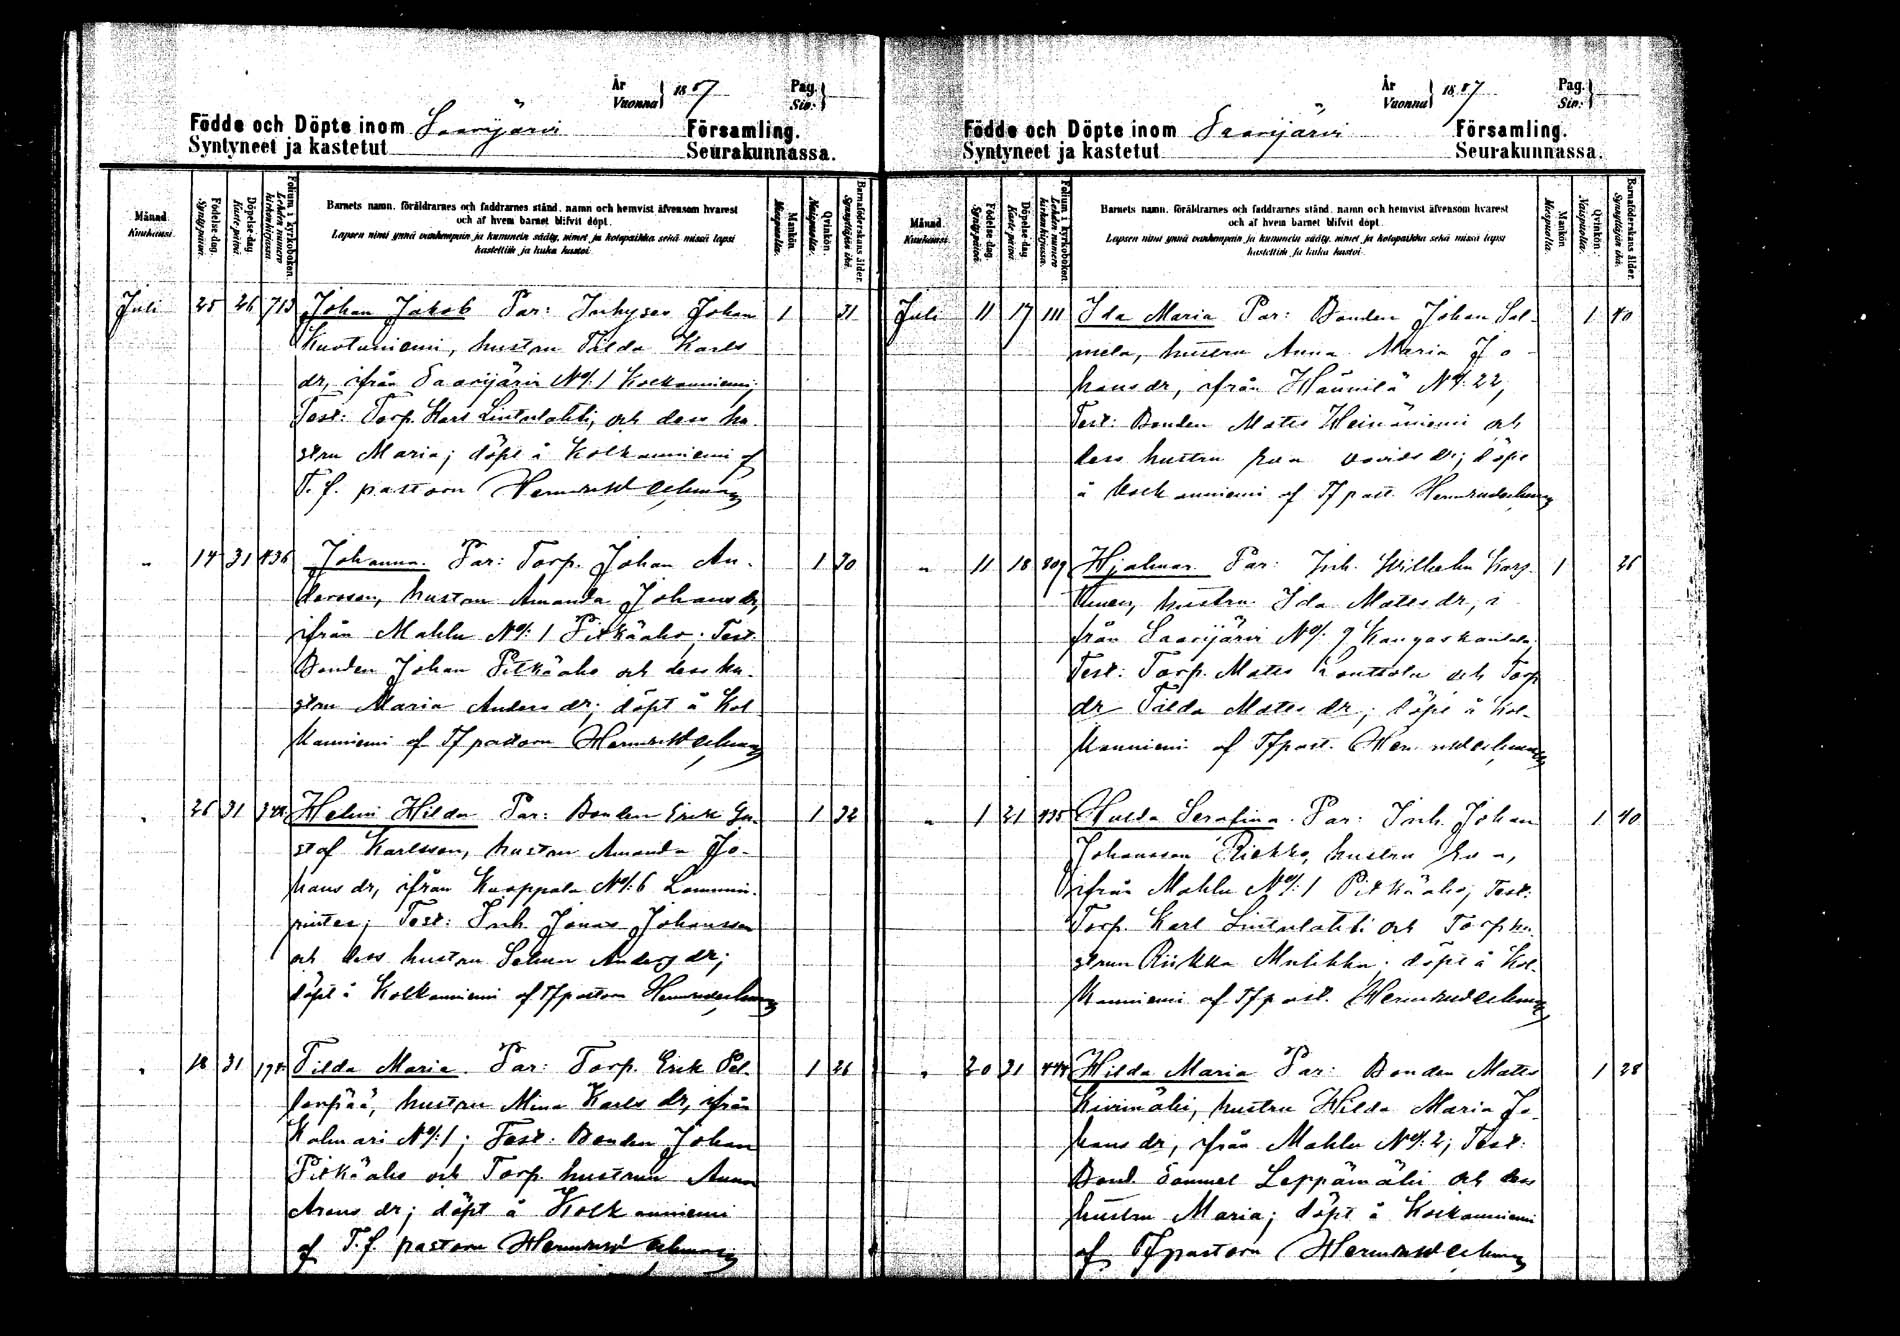 År
Vuonna } 1887
Pag.
Siv. }
Födde och Döpte inom Saarijärvi Församling.
Syntyneet ja kastetut Seurakunnassa.
Månad.
Kuukausi.
Födelse-dag.
Syntypäivä.
Döpelse-dag.
Kastepäivä.
Folium i kyrkoboken.
Lehden numero kirkonkirjassa.
Barnets namn, föräldrarnes och faddrarnes stånd, namn och hemvist äfvensom hvarest
och af hvem barnet blifvit döpt.
Lapsen nimi ynnä vanhempain ja kummein sääty, nimet ja kotopaikka sekä missä lapsi
kastettiin ja kuka kastoi.
Mankön.
Miespuolta.
Qvinkön.
Naispuolta.
Barnaföderskans ålder.
Synnyttäjän ikä.
Juli 25 26 713 Johan Jakob Par: Inhyses Johan 1 31
Kuotuniemi, hustru Tilda Karls
dr, ifrån Saarijärvi No/: 1 Kolkanniemi;
Test: Torp. Karl Lintulahti, och dess hu-
stru Maria; döpt å Kolkanniemi af
T. f. pastorn
" 14 31 436 Johanna. Par: Torp. Johan An- 1 30
dersson, hustru Amanda Johansdr,
ifrån Mahlu No/: 1 Pitkäaho; Test:
Bonden Johan Pitkäaho och dess hu-
stru Maria Anders dr; döpt å Kol-
kanniemi af Tf pastorn
" 26 31 Helmi Hilda Par: Bonden Erik Gu- 1 32
staf Karlsson, hustru Amanda Jo-
hans dr, ifrån Kuoppala No/: 6
Test: Inh. Jonas Johansson
och dess hustru Anders dr;
döpt å Kolkanniemi af Tf pastorn
" 18 31 Tilda Maria. Par: Torp. Erik Pel- 1 26
hustru Mina Karls dr, ifrån
Kalmari No/: 1; Test: Bonden Johan
Pitkäaho och Torp. hustrun Anna
dr; döpt å Kolkanniemi
af T. f. pastorn
År
Vuonna } 1887
Pag.
Siv. }
Födde och Döpte inom Saarijärvi Församling.
Syntyneet ja kastetut Seurakunnassa.
Månad.
Kuukausi.
Födelse-dag.
Syntypäivä.
Döpelse-dag.
Kastepäivä.
Folium i kyrkoboken.
Lehden numero kirkonkirjassa.
Barnets namn, föräldrarnes och faddrarnes stånd, namn och hemvist äfvensom hvarest
och af hvem barnet blifvit döpt.
Lapsen nimi ynnä vanhempain ja kummein sääty, nimet ja kotopaikka sekä missä lapsi
kastettiin ja kuka kastoi.
Mankön.
Miespuolta.
Qvinkön.
Naispuolta.
Barnaföderskans ålder.
Synnyttäjän ikä.
Juli 11 17 111 Ida Maria Par: Bonden Johan Sal- 1 40
mela, hustru Anna Maria Jo-
hansdr, ifrån No/: 22,
Test: Bonden Mats Heinäniemi och
dess hustru Eva Davids dr; döpt
å Kolkanniemi af Tf past.
" 11 18 809 Hjalmar. Par: Inh. Wilhelm 1 26
hustru Ida Mats dr, i
från Saarijärvi No/: 9
Test: Torp. Mats och Torp.
dr Tilda Mats dr; döpt å Kol-
kanniemi af Tf past.
" 1 21 435 Hulda Serafina. Par: Inh. Johan 1 40
Johansson Riekko, hustru Eva,
ifrån Mahlu No/: 1 Pitkäaho; Test:
Torp. Karl Lintulahti och Torp hu-
strun Riikka döpt å Kol-
kanniemi af Tf past.
" 20 21 Hilda Maria Par: Bonden Mats 1 28
Kivimäki, hustru Hilda Maria Jo-
hans dr, ifrån Mahlu No/: 2; Test:
Bond. Samuel Leppämäki och dess
hustru Maria; döpt å Kolkanniemi
af Tf pastorn